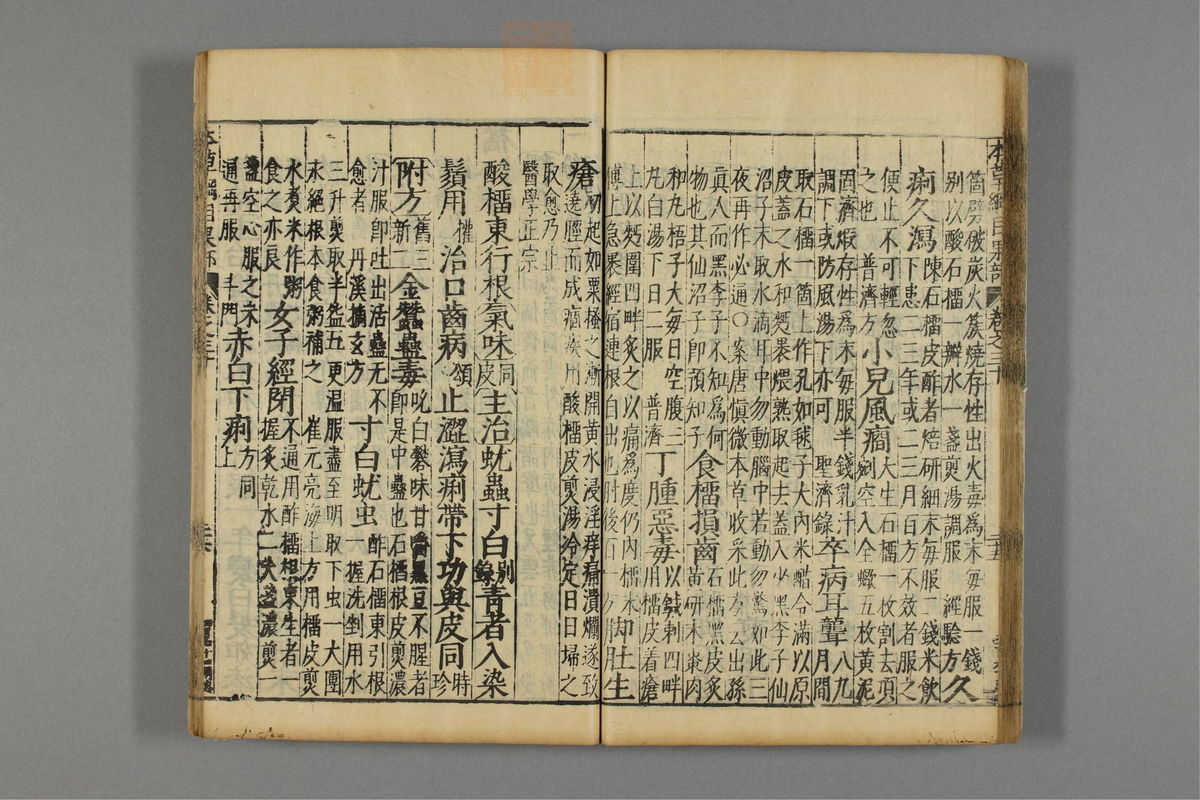 本草綱目果部 卷之三十
箇劈破炭火簇燒存性出火毒爲末每服一錢
別以酸石榴一瓣水一盞煎湯調服 經驗方 久
痢久瀉 陳石榴皮酢者焙研細末每服二錢米飲
下患二三年或二三月百方不效者服之
便止不可輕忽
之也 普濟方 小兒風癇 大生石榴一枚割去頂
剜空入全蠍五枚黃泥
固濟煅存性爲末每服半錢乳汁
調下或防風湯下亦可 聖濟錄 卒病耳聾 八九
月間
取石榴一箇上作孔如毬子大內米醋令滿以原
皮蓋之水和麪裹煨熟取起去蓋入少黑李子仙
沼子末取水滴耳中勿動腦中若動勿驚如此三
夜再作必通○案唐愼微本草收采此方云出孫
眞人而黑李子不知爲何
物也其仙沼子卽預知子 食榴損齒 石榴黑皮炙
黃研末棗肉
和丸梧子大每日空腹三
丸白湯下日二服 普濟 丁腫惡毒 以鍼刺四畔
用榴皮着瘡
上以麪圍四畔灸之以痛爲度仍內榴末
傅上急裹經宿連根自出也肘後百一方 脚肚生
瘡 初起如粟搔之漸開黃水浸淫痒痛潰爛遂致
遶脛而成痼疾用酸榴皮煎湯冷定日日掃之
取愈乃止
醫學正宗
酸榴東行根氣味 同皮 主治蚘蟲寸白 別錄 青者入染
鬚用 權 治口齒病 頌 止澀瀉痢帶下功與皮同 時珍
附方 舊三 新二 金蠶蠱毒 吮白礬味甘嚼黑豆不腥者
卽是中蠱也石榴根皮煎濃
汁服卽吐出活蠱无不
愈者 丹溪摘玄方 寸白蚘虫 酢石榴東引根
一握洗剉用水
三升煎取半盌五更溫服盡至明取下虫一大團
永絕根本食粥補之 崔元亮海上方用榴皮煎
水煮米作粥
食之亦良 女子經閉 不通用酢榴根東生者一
握炙乾水二大盞濃煎一
盞空心服之未
通再服 斗門 赤白下痢 方同
上
本草綱目果部 卷之三十